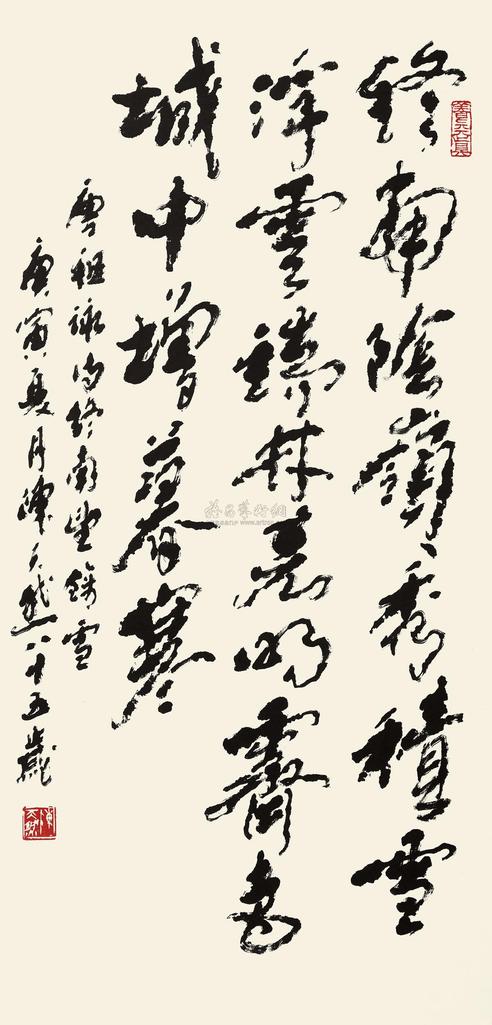 終南陰嶺秀積雪
浮雲端林表明霽色
城中增暮寒
唐祖詠詩終南望餘雪
庚寅夏月陳天然八十五歲
陳天然